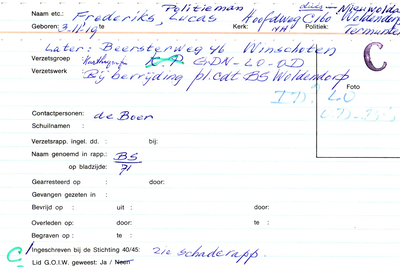 Politieman
Naam etc.: Frederiks, Lucas Hoofdweg C160 Nieuwolda
Geboren: 3-11-19 Kerk: NH Politiek: Woldendorp
Termunten
Later: Beersterweg 46 Winschoten
Verzetsgroep K.P. GDN-LO-OD
Verzetswerk Bij bevrijding pl.cdt BS Woldendorp
ID? LO
Foto
C
Contactpersonen: de Boer
Schuilnaam :
Verzetsrapp. ingel. dd. : bij:
Naam genoemd in rapp.: BS
op bladzijde: 71
Gearresteerd op : door:
Gevangen gezeten in :
Bevrijd op : uit : door:
Overleden op: door: te :
Begraven op : te :
C! Ingeschreven bij de Stichting 40/45: zie schaderapp.
Lid G.O.I.W. geweest: Ja / Neen